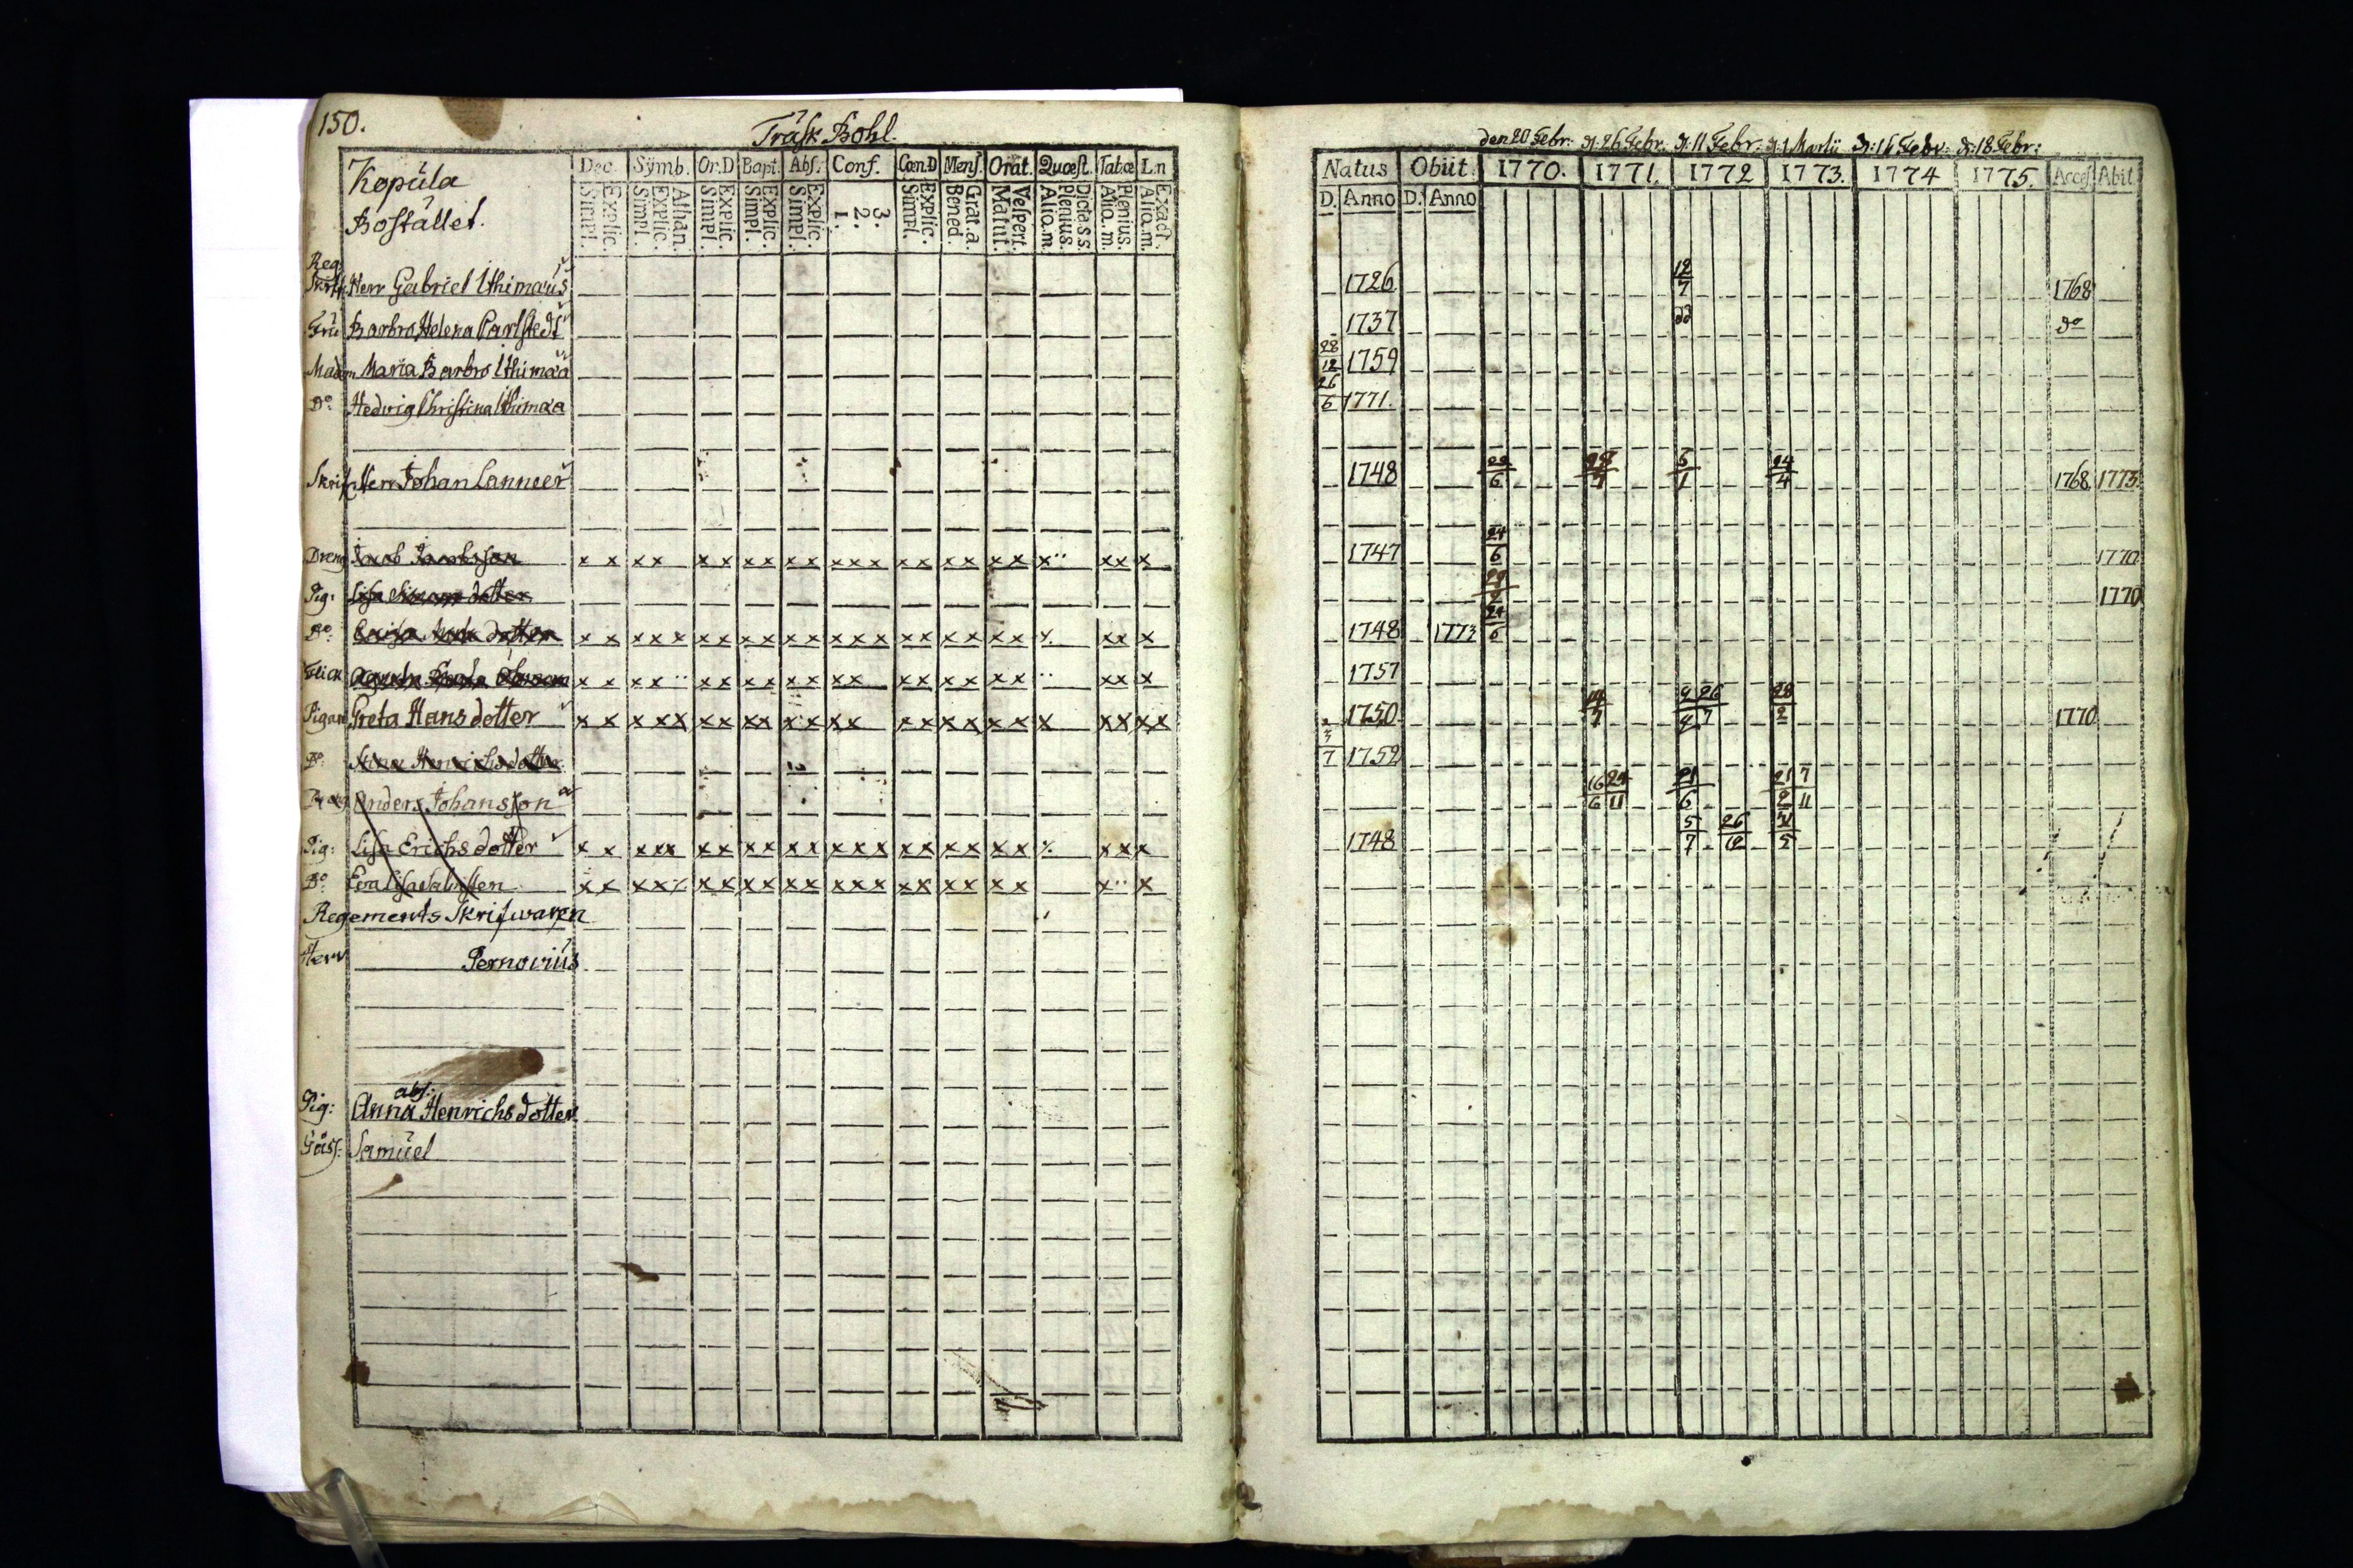 150.
Träsk Bohl.
den 20 Febr: d: 26 Febr. d: 11 Febr: d: 1 Martii d: 16 Febr: d: 18 Febr:
Kopüla
Bostället.
Dec. Sÿmb. Or.D Bapt. Abs. Conf. Cœn.D Mens. Orat. Quœst. Tabœ L.n
Simpl. Explic. Simpl. Explic. Athan. Simpl. Explic. Simpl. Explic. Simpl. Explic. 1. 2. 3. Simpl. Explic. Bened. Grat.a. Matut. Vespert. Alio.m. Plenius. Dicta s.s. Alio.m. Plenius. Alio.m. Exact.
Natus Obiit. 1770. 1771. 1772 1773. 1774 1775. Access Abit.
D. Anno D. Anno
Reg:
Skrif: Herr Gabriel Ithimæus 1726 12/7 1768
Fru Barbro Helena Carlstedt 1737 dd do
Madm Maria Barbro Ithimæa 28/12 1759
Do: Hedvig Christina Ithimæa 26/6 1771.
Skrif: Herr Johan Lanneer 1748 22/6 6/1 24/4 1768 1773.
Dreng Jacob Jacobsson x x x x x x x x x x x x x x x x x x x x x x x 1747 24/6 1770
Pig: Lisa dotter 1770
Do: dotter x x x x x x x x x x x x x x x x x x x x x x x 1748 1773 24/6
x x x x x x x x x x x x x x x x x x x x x 1757
Pigan Greta Hans dotter x x x x x x x x x x x x x x x x x x x x x x x x 1750 26/7 28/2 1770
Do: Stina Henrichsdotter 7 1752
Anders Johansson 16/6 24/11 21/6 21/2 7/11
Pig: Lisa Erichs dotter x x x x x x x x x x x x x x x x x x x x x x x x 1748 5/7 26/12 31/5
Do Eva Lisa x x x x x x x x x x x x x x x x x x x x x x
Regements Skrifwaren
Herr Pernovius
abs:
Pig: Anna Henrichs dotter
Goss: Samuel